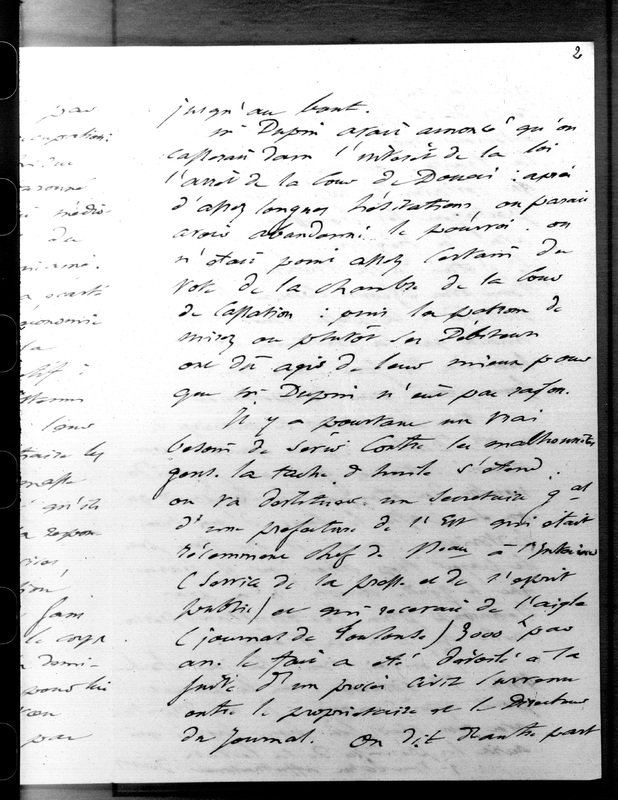 2
jusqu'au bout.
Mr Dupin avait annoncé qu'on
casserait dans l'intérêt de la loi
l'arrêt de la Cour de Douai : après
d'assez longues hésitations on paraît
avoir abandonné le pourvoi. on
n'était point assez certain du
vote de la chambre de la Cour
de Cassation : puis les patrons de
mirès ou plutôt ses Débiteurs
ont dû agir de leur mieux pour
que Mr. Dupin n'eut pas raison.
Il y a pourtant un vrai
besoin de sévir contre les malhonnêtes
gens. la tache d'huile s'étend :
on va destituer un secrétaire gal
d'une préfecture de l'Est qui était
récemment chef de Bureau à l'Intérieur
(Service de la presse et de l'esprit
public) et qui recevait de l'aigle
(journal de Toulouse) 3000 f par
an. le fait a été dévoilé à la
suite d'un procès civil survenu
entre le propriétaire et le Directeur
du Journal. On dit d'autre part
par
le corps
pour lui
par